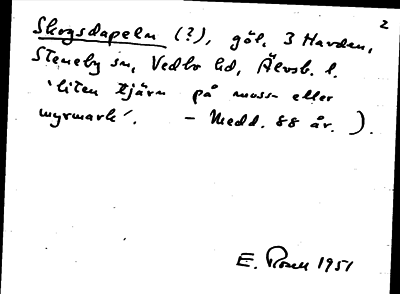 2
Skogsdapeln (?), göl, 3 Harden,
Steneby sn, Vedbo hd, Älvsb. l.
'liten tjärn på moss- eller
myrmark'. - Medd. 88 år. ).
E. Rosell 1951